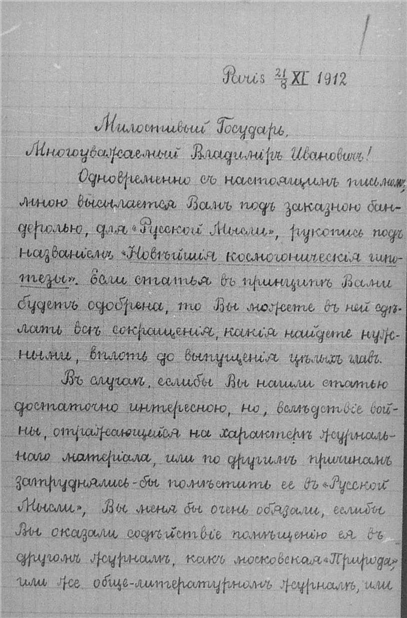 1
Paris 21/8 XI 1912
Милостивый Государь,
Многоуважаемый Владиміръ Ивановичъ!
Одновременно съ настоящимъ письмомъ,
мною высылается Вамъ подъ заказною бан-
деролью, для «Русской Мысли», рукопись подъ
названіемъ «Новѣйшія космогоническія гипо-
тезы». Если статья въ принципѣ Вами
будетъ одобрена, то Вы можете въ ней сдѣ-
лать всѣ сокращенія, какія найдете нуж-
ными, вплоть до выпущенія цѣлыхъ главъ.
Въ случаѣ, еслибы Вы нашли статью
достаточно интересною, но, вслѣдствіе вой-
ны, отражающейся на характерѣ журналь-
наго матеріала, или по другимъ причинамъ
затруднялись-бы помѣстить ее въ «Русской
Мысли», Вы меня бы очень обязали, еслибы
Вы оказали содѣйствіе помѣщенію ея въ
другомъ журналѣ, какъ московская «Природа»,
или же обще-литературномъ журналѣ, или